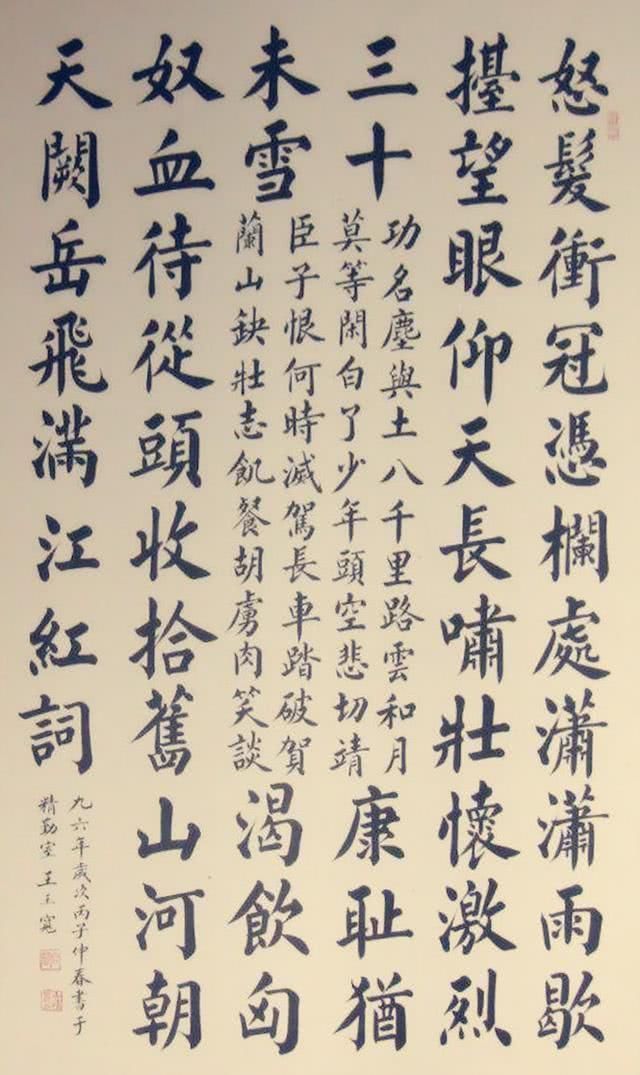 怒髮衝冠憑欄處瀟瀟雨歇
擡望眼仰天長嘯壯懷激烈
三十
功名塵與土八千里路雲和月
莫等閑白了少年頭空悲切靖
康耻猶
未雪
臣子恨何時滅駕長車踏破賀
蘭山缺壯志飢餐胡虜肉笑談
渴飲匈
奴血待從頭收拾舊山河朝
天闕岳飛滿江紅詞
九六年歲次丙子仲春書于
精勤室王玉寬